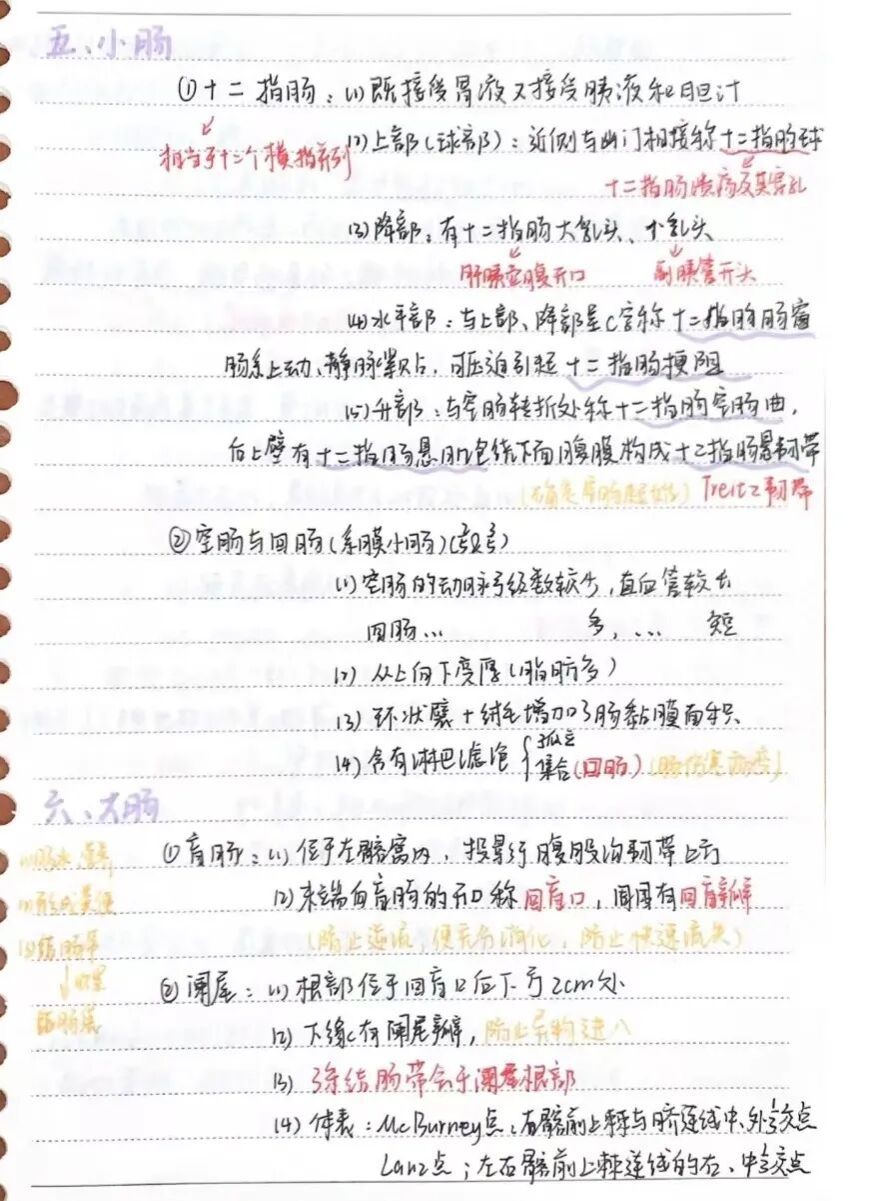 五、小肠
①十二指肠：(1)既接受胃液又接受胰液和胆汁
相当于十二个横指并列
(2)上部(球部)：近侧与幽门相接称十二指肠球
十二指肠溃疡及其穿孔
(3)降部：有十二指肠大乳头、小乳头
肝胰壶腹开口 副胰管开头
(4)水平部：与上部、降部呈C字称十二指肠肠窗
肠系上动、静脉紧贴，可压迫引起十二指肠梗阻
(5)升部：与空肠转折处称十二指肠空肠曲，
后上壁有十二指肠悬肌包绕下面腹膜构成十二指肠悬韧带
Treitz韧带
②空肠与回肠(系膜小肠)
(1)空肠的动脉弓级数较少，直血管较长
回肠… 多，… 短
(2)从上向下变厚(脂肪多)
(3)环状襞+绒毛增加了肠黏膜面积
(4)含有淋巴滤泡{孤立
集合(回肠)(肠伤寒病变)
六、大肠
①盲肠：(1)位于左髂窝内，投影行腹股沟韧带上方
(2)末端向盲肠的开口称回盲口，周围有回盲瓣
(防止逆流，使充分消化，防止快速流失)
(2)形成粪便
(3)结肠带
结肠袋
②阑尾：(1)根部位于回盲口后下方2cm处
(2)下缘有阑尾瓣，防止异物进入
(3)3条结肠带会于阑尾根部
(4)体表：McBurney点：右髂前上棘与脐连线中、外⅓交点
Lanz点；左右髂前上棘连线的右、中⅓交点